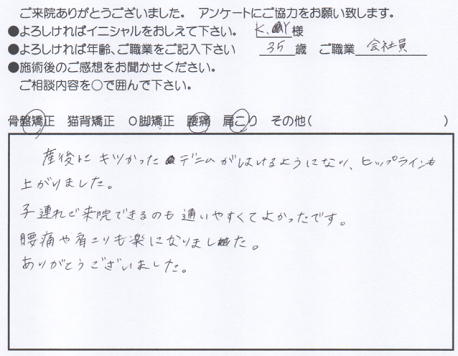 ご来院ありがとうございました。　アンケートにご協力をお願い致します。
●よろしければイニシャルをおしえて下さい。　K. Y 様
●よろしければ年齢、ご職業をご記入下さい　35 歳　ご職業　会社員
●施術後のご感想をお聞かせください。
ご相談内容を○で囲んで下さい。
骨盤矯正　猫背矯正　O脚矯正　腰痛　肩こり　その他(　　　)
産後にキツかったデニムがはけるようになり、ヒップラインも
上がりました。
子連れで来院できるのも通いやすくてよかったです。
腰痛や肩こりも楽になりました。
ありがとうございました。